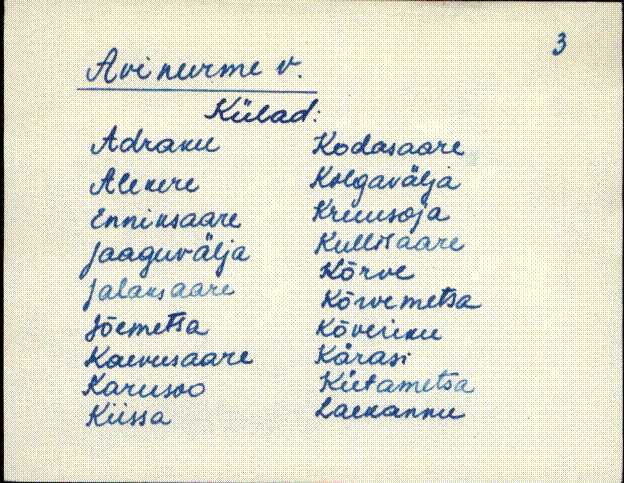 3
Avinurme v.
Külad:
Adraku
Alekere
Enniksaare
Jaaguvälja
Jalaksaare
Jõemetsa
Kaevusaare
Karusoo
Kiissa
Kodasaare
Kolgavälja
Kruusoja
Kullisaare
Kõrve
Kõrvemetsa
Kõveriku
Kärasi
Kütametsa
Laekannu